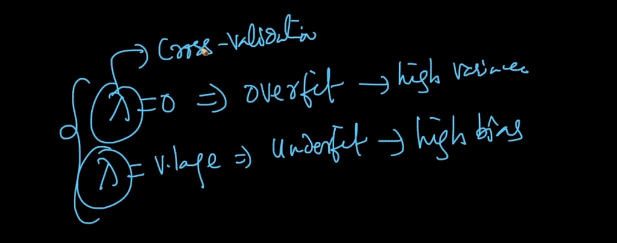 Cross-validation
λ = 0 ⇒ overfit → high variance
λ = v.large ⇒ Underfit → high bias